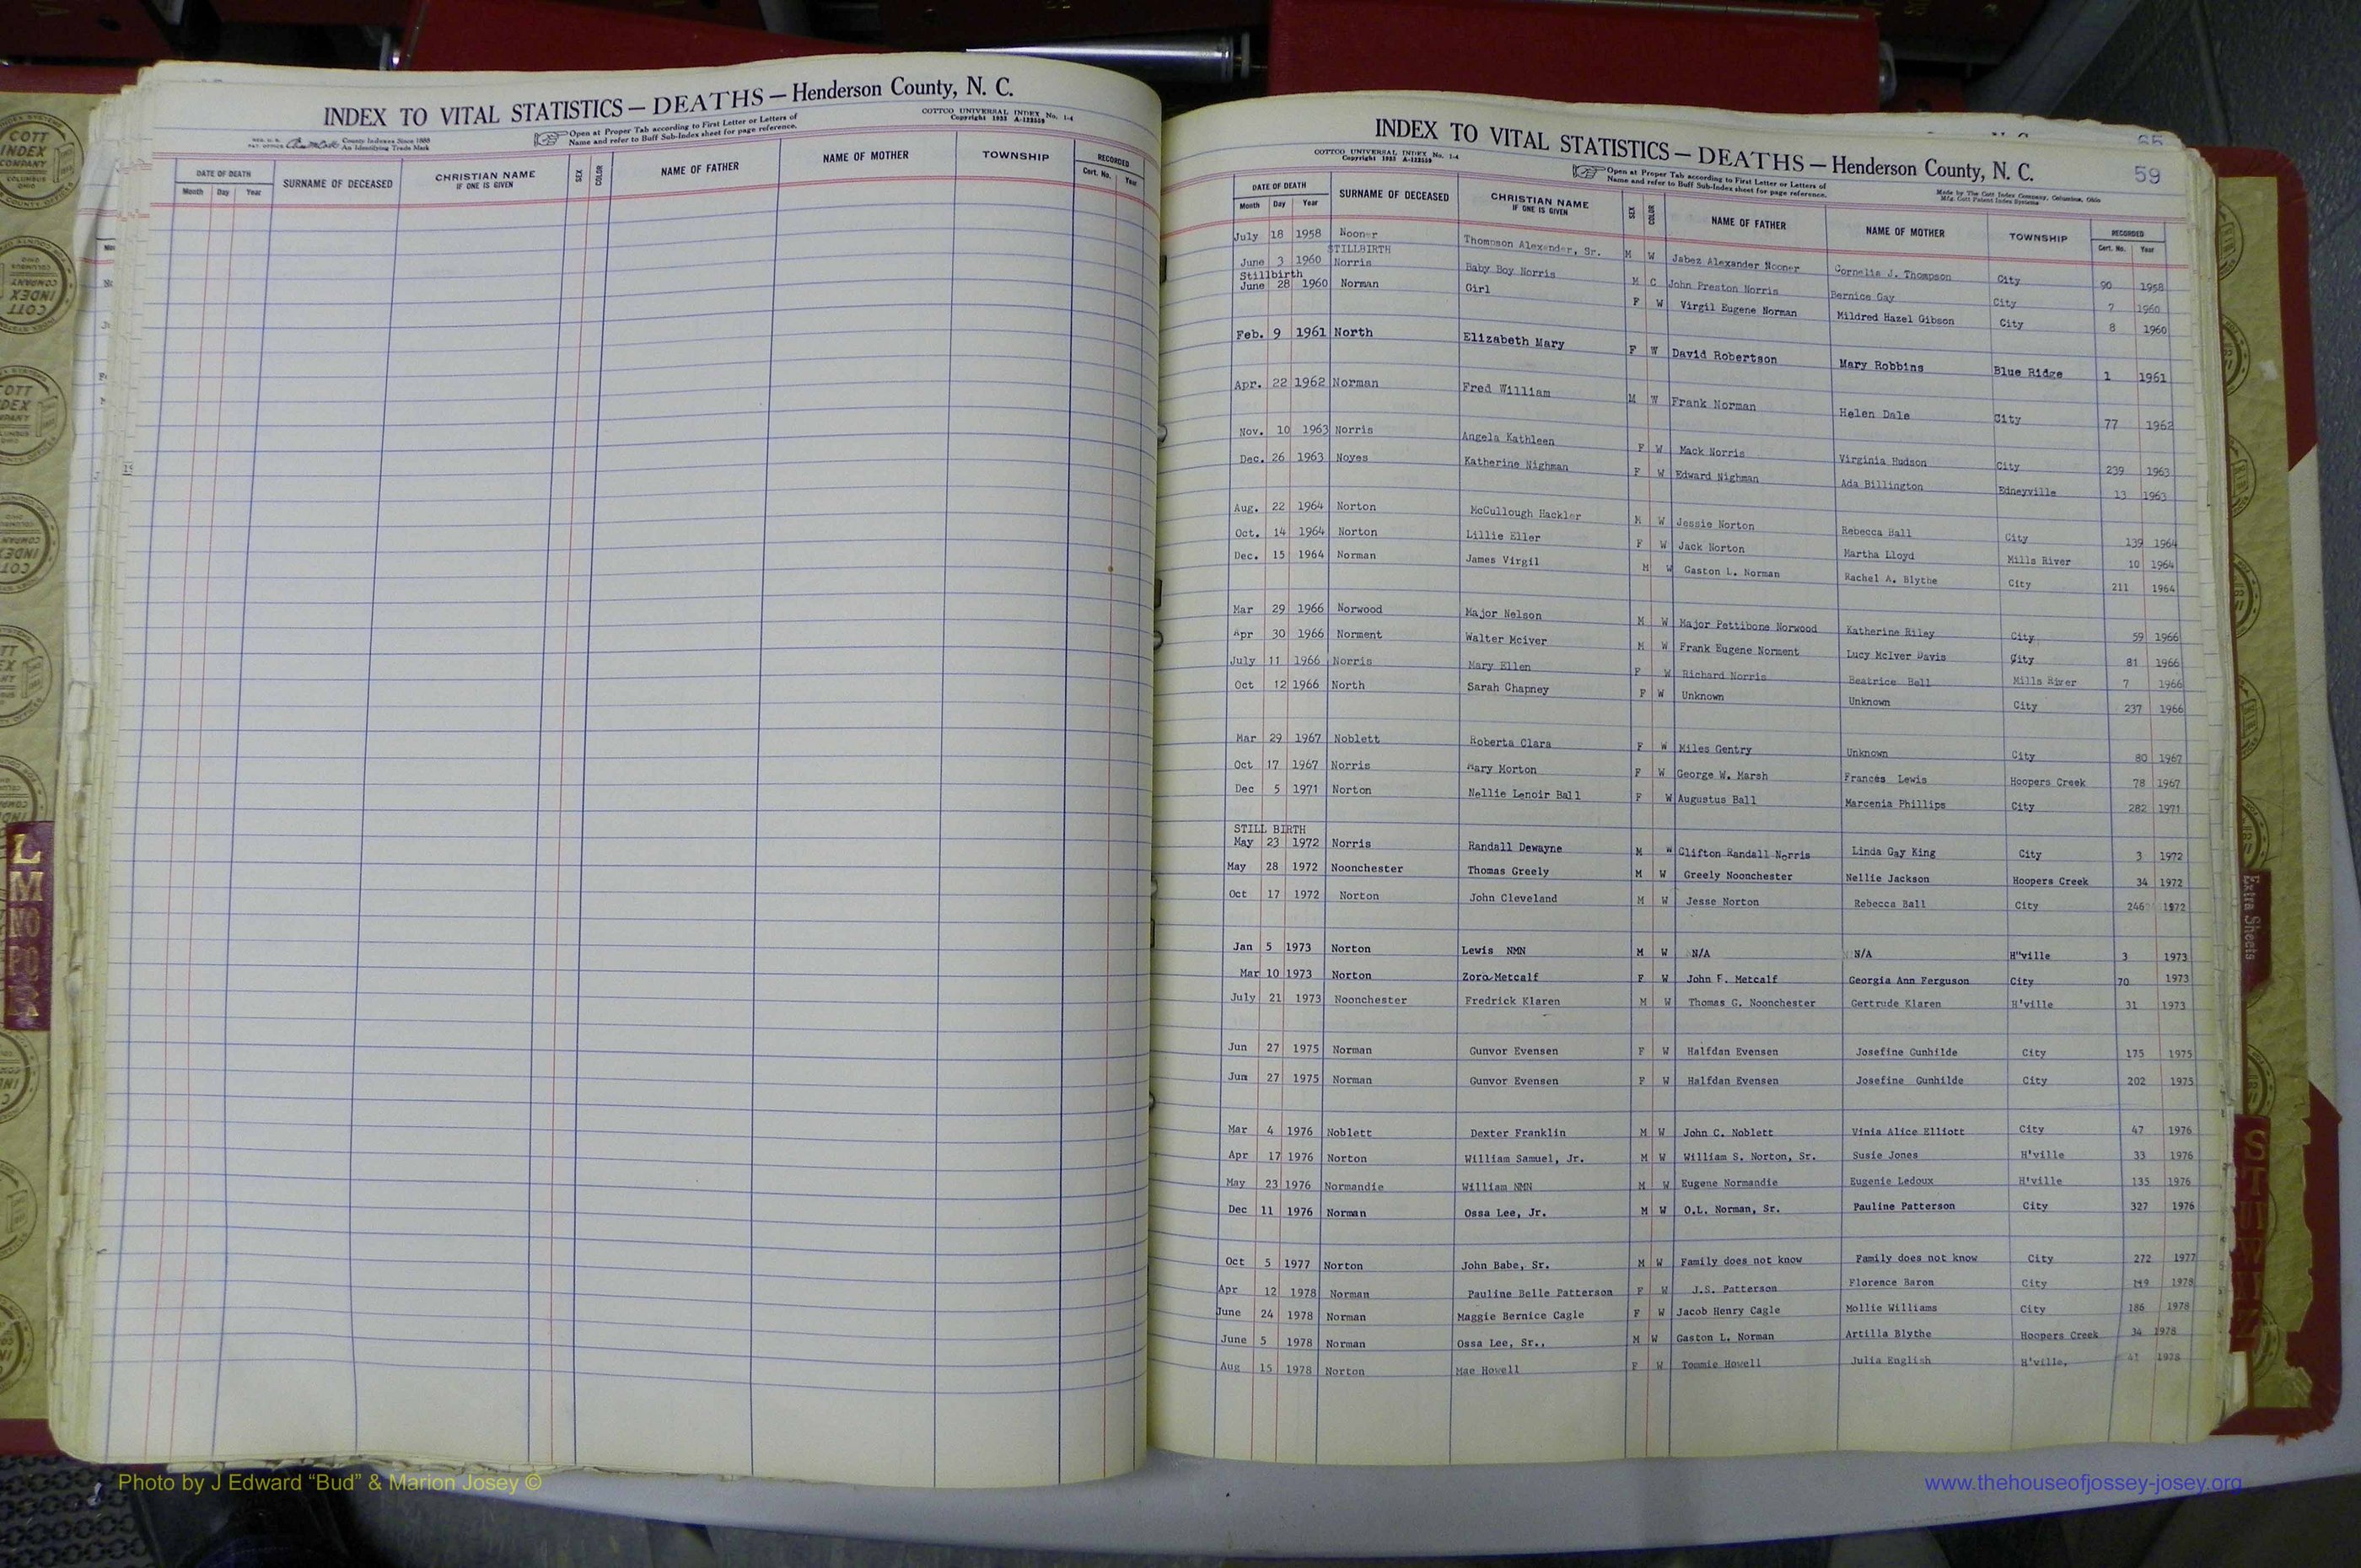 INDEX TO VITAL STATISTICS — DEATHS — Henderson County, N. C.
COTTCO UNIVERSAL INDEX No. 1-4
Copyright 1933 A-122559
County Indexes Since 1888
An Identifying Trade Mark
Open at Proper Tab according to First Letter or Letters of
Name and refer to Buff Sub-Index sheet for page reference.
DATE OF DEATH
Month Day Year
SURNAME OF DECEASED
CHRISTIAN NAME
IF ONE IS GIVEN
SEX
COLOR
NAME OF FATHER
NAME OF MOTHER
TOWNSHIP
RECORDED
Cert. No. Year
INDEX TO VITAL STATISTICS — DEATHS — Henderson County, N. C.
59
COTTCO UNIVERSAL INDEX No. 1-4
Copyright 1933 A-122559
Open at Proper Tab according to First Letter or Letters of
Name and refer to Buff Sub-Index sheet for page reference.
Made by The Cott Index Company, Columbus, Ohio
Mfg. Cott Patent Index Systems
DATE OF DEATH
Month Day Year
SURNAME OF DECEASED
CHRISTIAN NAME
IF ONE IS GIVEN
SEX
COLOR
NAME OF FATHER
NAME OF MOTHER
TOWNSHIP
RECORDED
Cert. No. Year
July 18 1958 Nooner Thompson Alexander, Sr. M W Jabez Alexander Nooner Cornelia J. Thompson City 90 1958
STILLBIRTH
June 3 1960 Norris Baby Boy Norris M C John Preston Norris Bernice Gay City 7 1960
Stillbirth
June 28 1960 Norman Girl F W Virgil Eugene Norman Mildred Hazel Gibson City 8 1960
Feb. 9 1961 North Elizabeth Mary F W David Robertson Mary Robbins Blue Ridge 1 1961
Apr. 22 1962 Norman Fred William M W Frank Norman Helen Dale City 77 1962
Nov. 10 1963 Norris Angela Kathleen F W Mack Norris Virginia Hudson City 239 1963
Dec. 26 1963 Noyes Katherine Nighman F W Edward Nighman Ada Billington Edneyville 13 1963
Aug. 22 1964 Norton McCullough Hackler M W Jessie Norton Rebecca Ball City 139 1964
Oct. 14 1964 Norton Lillie Eller F W Jack Norton Martha Lloyd Mills River 10 1964
Dec. 15 1964 Norman James Virgil M W Gaston L. Norman Rachel A. Blythe City 211 1964
Mar 29 1966 Norwood Major Nelson M W Major Pettibone Norwood Katherine Riley City 59 1966
Apr 30 1966 Norment Walter Mciver M W Frank Eugene Norment Lucy McIver Davis City 81 1966
July 11 1966 Norris Mary Ellen F W Richard Norris Beatrice Bell Mills River 7 1966
Oct 12 1966 North Sarah Chapney F W Unknown Unknown City 237 1966
Mar 29 1967 Noblett Roberta Clara F W Miles Gentry Unknown City 80 1967
Oct 17 1967 Norris Mary Morton F W George W. Marsh Frances Lewis Hoopers Creek 78 1967
Dec 5 1971 Norton Nellie Lenoir Ball F W Augustus Ball Marcenia Phillips City 282 1971
STILL BIRTH
May 23 1972 Norris Randall Dewayne M W Clifton Randall Norris Linda Gay King City 3 1972
May 28 1972 Noonchester Thomas Greely M W Greely Noonchester Nellie Jackson Hoopers Creek 34 1972
Oct 17 1972 Norton John Cleveland M W Jesse Norton Rebecca Ball City 246 1972
Jan 5 1973 Norton Lewis NMN M W N/A N/A H"ville 3 1973
Mar 10 1973 Norton Zora Metcalf F W John F. Metcalf Georgia Ann Ferguson City 70 1973
July 21 1973 Noonchester Fredrick Klaren M W Thomas G. Noonchester Gertrude Klaren H'ville 31 1973
Jun 27 1975 Norman Gunvor Evensen F W Halfdan Evensen Josefine Gunhilde City 175 1975
Jun 27 1975 Norman Gunvor Evensen F W Halfdan Evensen Josefine Gunhilde City 202 1975
Mar 4 1976 Noblett Dexter Franklin M W John C. Noblett Vinia Alice Elliott City 47 1976
Apr 17 1976 Norton William Samuel, Jr. M W William S. Norton, Sr. Susie Jones H'ville 33 1976
May 23 1976 Normandie William NMN M W Eugene Normandie Eugenie Ledoux H'ville 135 1976
Dec 11 1976 Norman Ossa Lee, Jr. M W O.L. Norman, Sr. Pauline Patterson City 327 1976
Oct 5 1977 Norton John Babe, Sr. M W Family does not know Family does not know City 272 1977
Apr 12 1978 Norman Pauline Belle Patterson F W J.S. Patterson Florence Baron City 119 1978
June 24 1978 Norman Maggie Bernice Cagle F W Jacob Henry Cagle Mollie Williams City 186 1978
June 5 1978 Norman Ossa Lee, Sr., M W Gaston L. Norman Artilla Blythe Hoopers Creek 34 1978
Aug 15 1978 Norton Mae Howell F W Tommie Howell Julia English H'ville, 41 1978
L
M
NO
Extra Sheets
S
T
Photo by J Edward “Bud” & Marion Josey ©
www.thehouseofjossey-josey.org